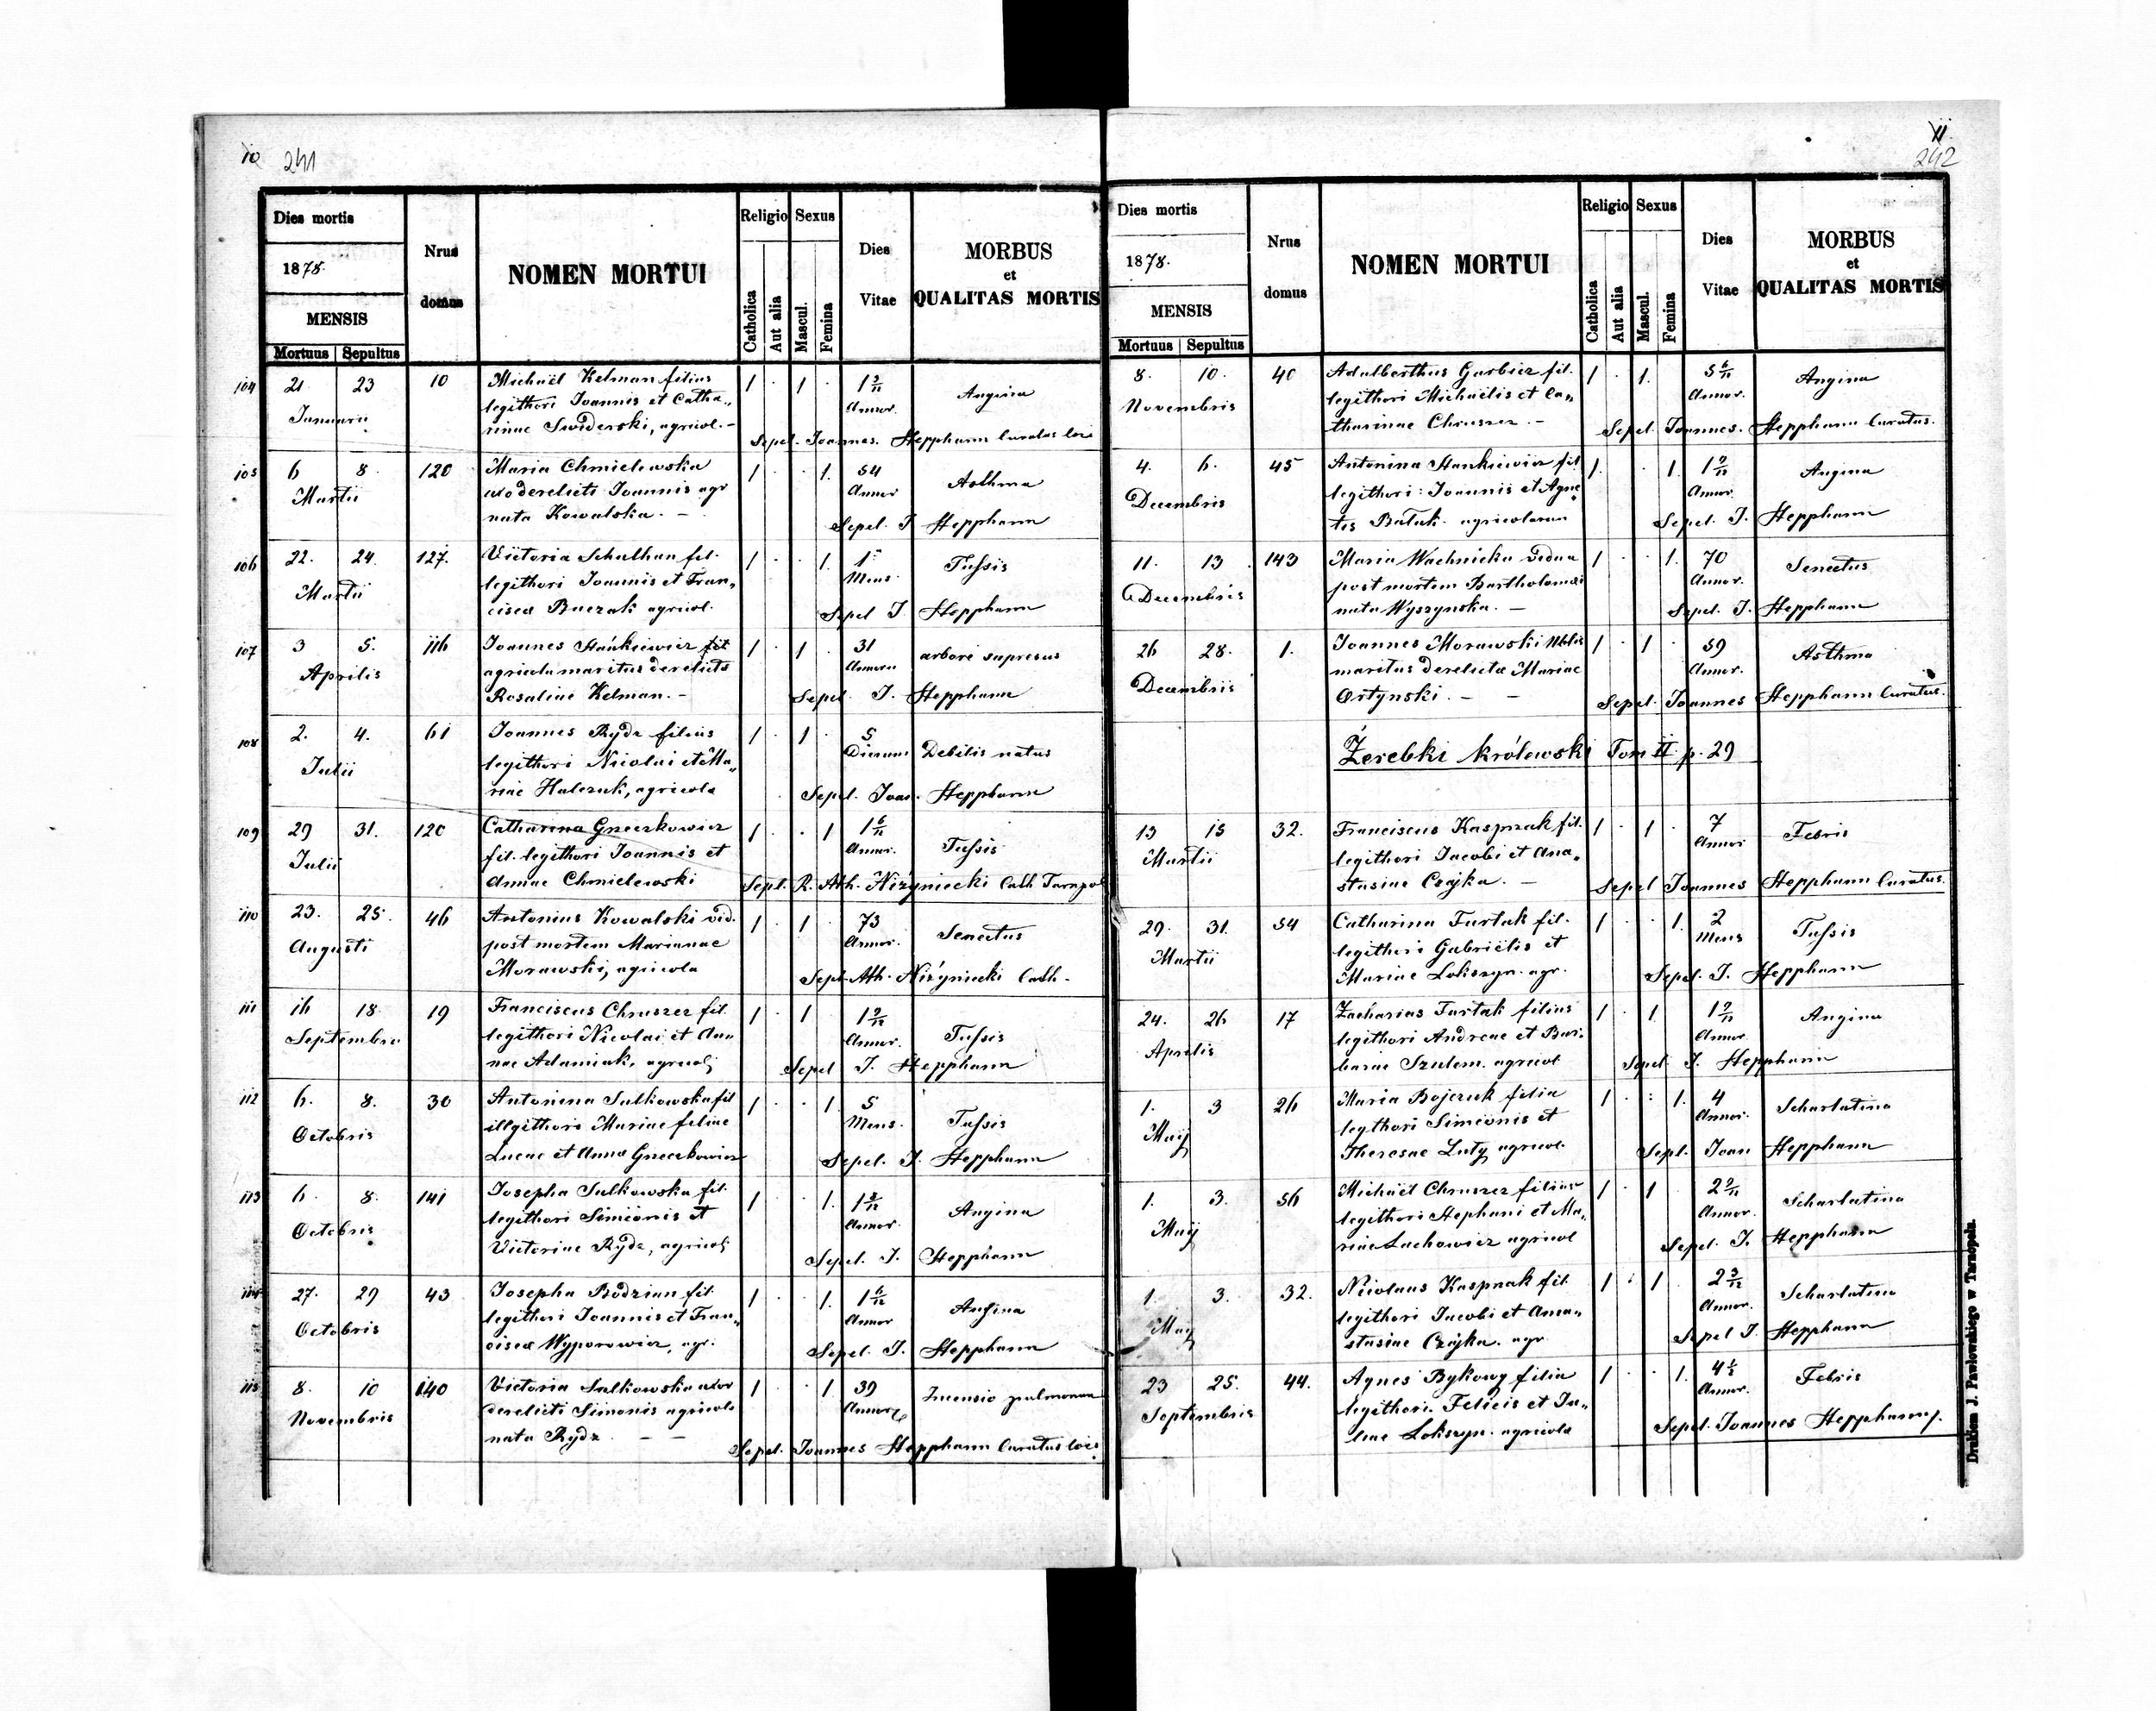 10 241
Dies mortis
1878.
MENSIS
Mortuus Sepultus
Nrus domus
NOMEN MORTUI
Religio Sexus
Catholica Aut alia Mascul. Femina
Dies Vitae
MORBUS et QUALITAS MORTIS
104 21 23 10 Michaël Kelman filius 1 . 1 . 1 9/12 Angina
Januarii legithori Joannis et Catha„ Annor.
rinae Swiderski, agricol. –
Sepel. Joannes. Stepphann Curatus loci
105 6 8. 120 Maria Chmielewska 1 . . 1. 54 Asthma
Martii uxo derelicti Joannis agr Annor
nata Kowalska. –
Sepel. J. Stepphann
106 22. 24. 127. Victoria Schulhan fil. 1 . . 1. 1 Tussis
Martii legithori Joannis et Fran„ Mens.
cisca Buczak agricol.
Sepel J. Stepphann
107 3 5. 116 Joannes Stańkiewicz fil 1 . 1 31 arbore supresus
Aprilis agricola maritus derelicta Annoru
Rosaliae Kelman. –
Sepel. J. Stepphann
108 2. 4. 61 Joannes Rydz filius 1 . 1 . 5 Debilis natus
Julii legithori Nicolai et Ma„ Dierum
riae Halczuk, agricola
Sepel. Joan. Stepphann
109 29 31. 120 Catharina Gneczkowicz 1 . . 1 1 6/12 Tussis
Julii fil. legithori Joannis et Annor.
Annae Chmielewski
Sepl. R. Ath. Niżyniecki Cath Tarnpol
110 23. 25. 46 Antonius Kowalski vid. 1 . 1 . 73 Senectus
Augusti post mortem Mariannae Annor.
Morawski, agricola
Sepl. Ath. Niżyniecki Cath.
111 16 18. 19 Franciscus Chruszcz fil. 1 . 1 1 9/12 Tussis
Septembris legithori Nicolai et An„ Annor.
nae Adamiak, agricol
Sepel J. Stepphann
112 6. 8. 30 Antonina Sulkowska fil 1 . . 1. 5 Tussis
Octobris illgithori Mariae filiae Mens.
Lucae et Anna Gneczkowicz
Sepel. J. Stepphann
113 6. 8. 141 Josepha Sulkowska fil. 1 . . 1. 1 8/12 Angina
Octobris legithori Simionis et Annor.
Victoriae Rydz, agricol
Sepel. J. Stepphann
114 27. 29 43 Josepha Bodzian fil. 1 . . 1. 1 6/12 Angina
Octobris legithori Joannis et Fran„ Annor
cisca Wyporowicz, agr.
Sepel. J. Stepphann
115 8. 10 140 Victoria Sulkowska uxor 1 . . 1. 39 Incensio pulmonum
Novembris derelicti Simonis agricola Annor
nata Rydz. – –
Sepel. Joannes Stepphann Curatus loci
11. 242
Dies mortis
1878.
MENSIS
Mortuus Sepultus
Nrus domus
NOMEN MORTUI
Religio Sexus
Catholica Aut alia Mascul. Femina
Dies Vitae
MORBUS et QUALITAS MORTIS
8. 10. 40 Adalberthus Garbicz fil. 1 . 1. 5 6/12 Angina
Novembris legithori Michaëlis et Ca„ Annor.
tharinae Chruszcz. –
Sepel. Joannes. Stepphann Curatus.
4. 6. 45 Antonina Stankiewicz fil 1. . 1. 1 9/12 Angina
Decembris legithori: Joannis et Agne Annor.
tis Batuk. agricolarum
Sepel. J. Stepphann
11. 13 143 Maria Wachnicka vidua 1 . . 1. 70 Senectus
Decembris post mortem Bartholomæi Annor.
nata Wyszynska. –
Sepel. J. Stepphann
26 28. 1. Joannes Morawski Nblis 1 . 1 . 59 Asthma
Decembris maritus derelicta Mariae Annor.
Ortynski. – –
Sepel. Joannes Stepphann Curatus.
Żerebki królewski Tom II p. 29
13 15 32. Franciscus Kasprzak fil. 1 . 1 . 7 Febris
Martii legithori Jacobi et Ana„ Annor
stasiae Czajka. –
Sepel Joannes Stepphann Curatus.
29. 31. 54 Catharina Furtak fil. 1 . . 1. 2 Tussis
Martii legithori Gabriëlis et Mens
Mariae Lokszyn. agr.
Sepel. J. Stepphann
24. 26 17 Zacharias Furtak filius 1 . 1 1 9/12 Angina
Aprilis legithori Andreae et Bar„ Annor
barae Szulem. agricol
Sepel. J. Stepphann
1. 3 26 Maria Bojczuk filia 1 . : 1. 4 Scharlatina
Maij legthori Simionis et Annor.
Theresae Luty agricol.
Sepl. Joan Stepphann
1. 3. 56 Michaël Chruszcz filius 1 . 1 2 9/12 Scharlatina
Maij legithori Stephani et Ma„ Annor.
riae Lachowicz agricol
Sepel. J. Stepphann
1. 3. 32. Nicolaus Kasprzak fil. 1 : 1 2 3/12 Scharlatina
Maij legithori Jacobi et Ana„ Annor.
stasiae Czajka. agr.
Sepel J. Stepphann
23 25. 44. Agnes Bykowy filia 1 . . 1. 4 1/2 Febris
Septembris legithori. Felicis et Ju„ Annor.
liae Lokszyn. agricola
Sepel. Joannes Stepphann
Drukiem J. Pawłowskiego w Tarnopolu.